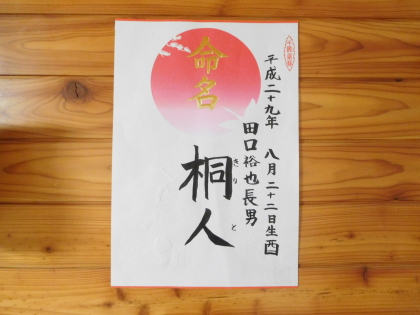 平成二十九年 八月二十二日生酉
田口裕也長男
命名
桐人
きりと